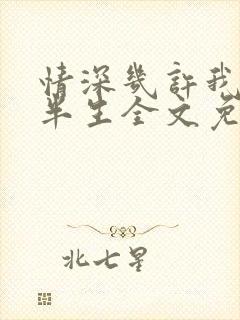 情深几许我
半生全文免
北七星